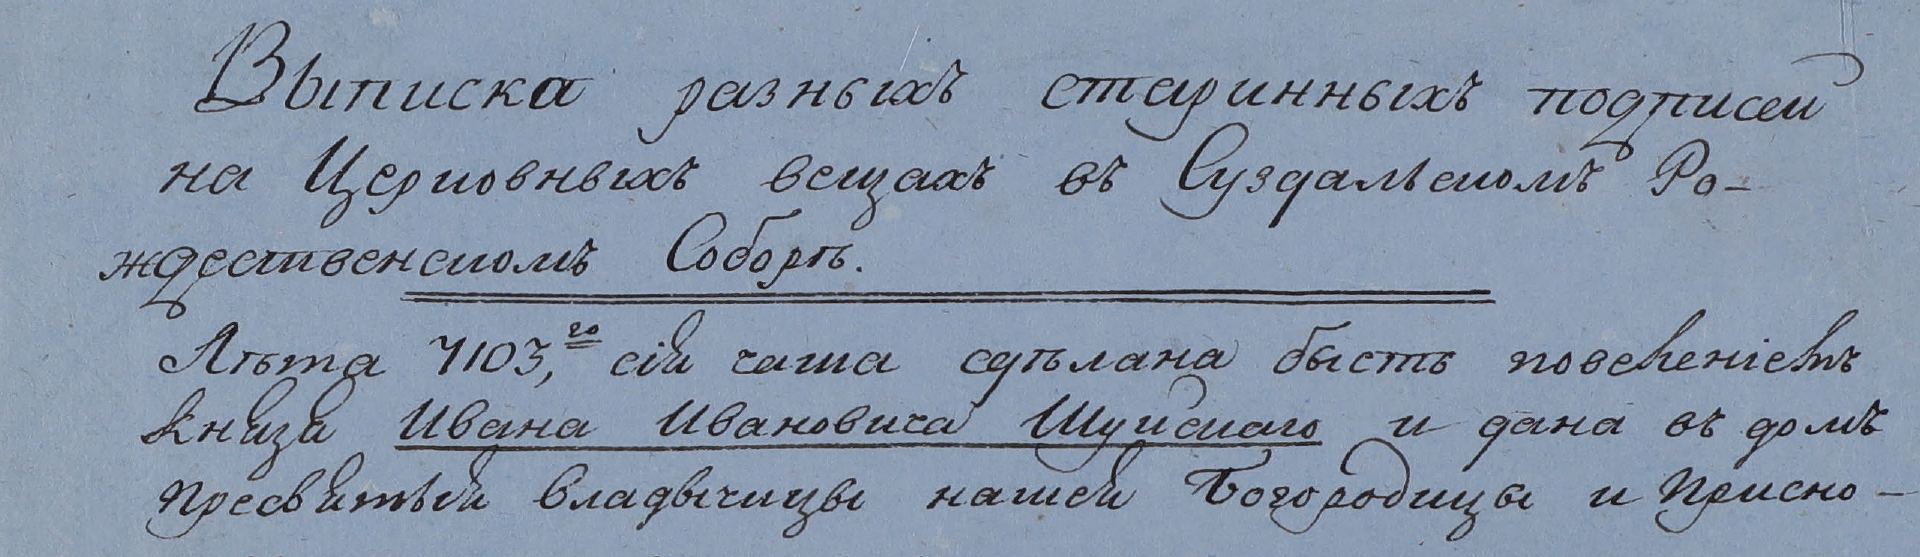 Выписка разныхъ старинныхъ подписей
на Церковныхъ вещахъ въ Суздальскомъ Ро-
ждественскомъ Соборѣ.
Лѣта 7103,го сія чаша сдѣлана бысть повелѣніемъ
Князя Ивана Ивановича Шуйскаго и дана въ домъ
пресвятыя Владычицы нашея Богородицы и Присно-